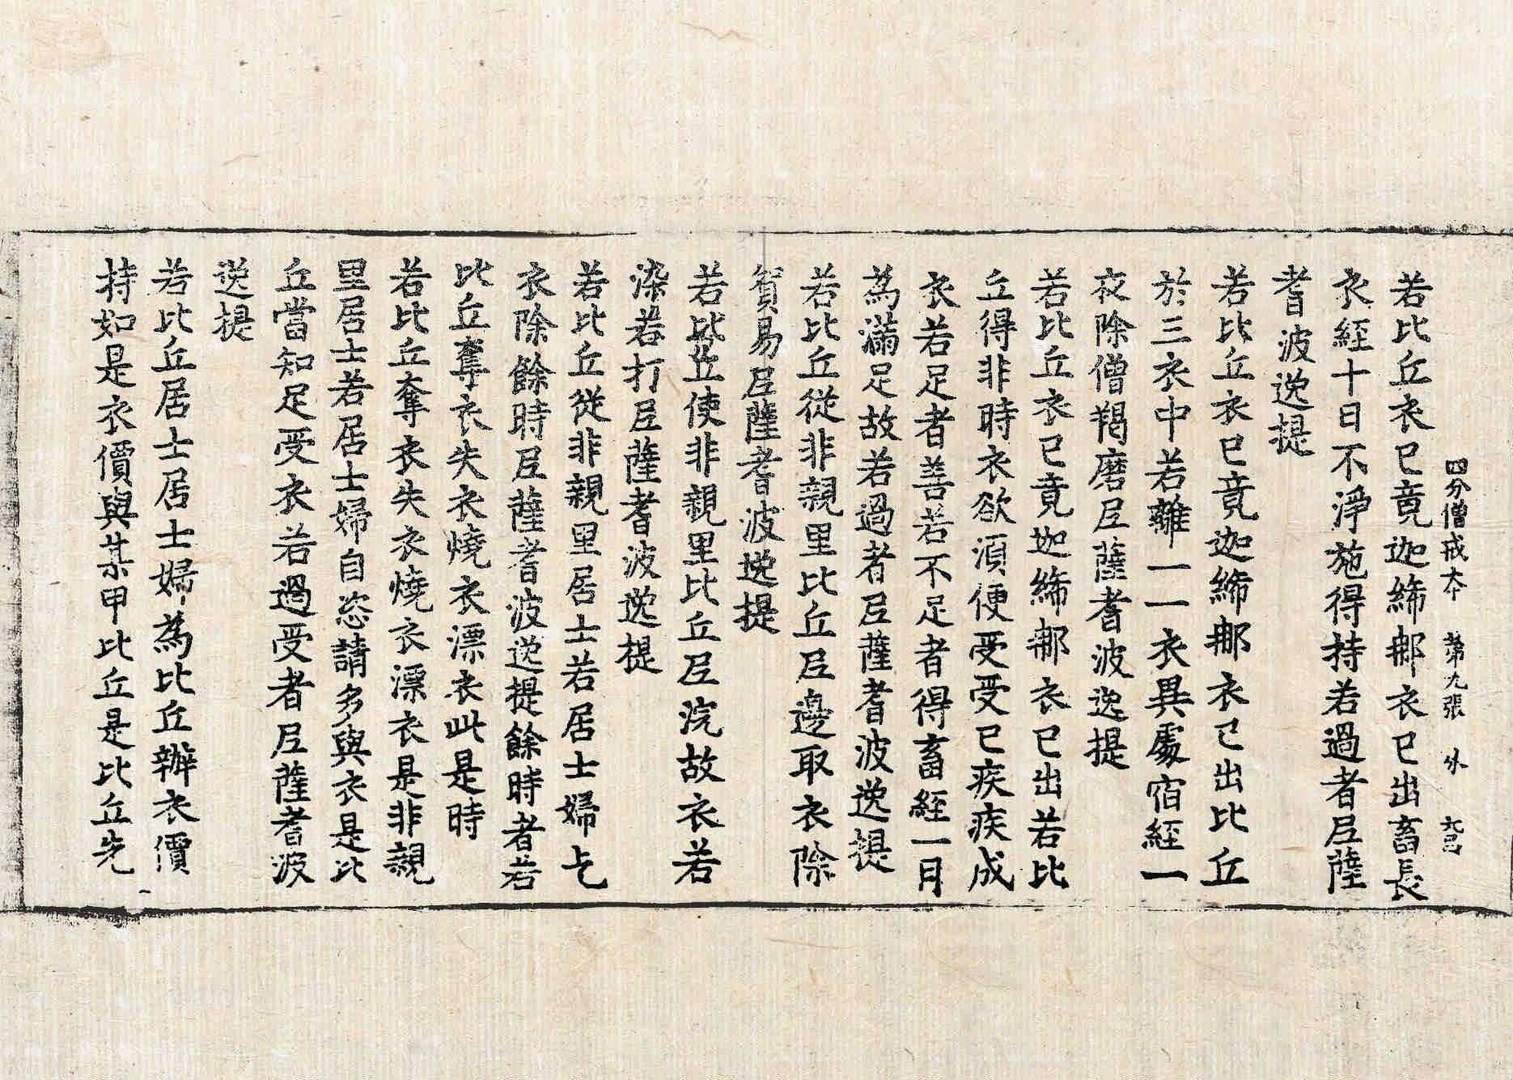 四分僧戒本　第九張　外
若比丘衣已竟迦絺那衣已出畜長
衣經十日不淨施得持若過者尼薩
耆波逸提
若比丘衣已竟迦絺那衣已出比丘
於三衣中若離一一衣異處宿經一
夜除僧羯磨尼薩耆波逸提
若比丘衣已竟迦絺那衣已出若比
丘得非時衣欲須便受受已疾疾成
衣若足者善若不足者得畜經一月
為滿足故若過者尼薩耆波逸提
若比丘從非親里比丘尼邊取衣除
貿易尼薩耆波逸提
若比丘使非親里比丘尼浣故衣若
染若打尼薩耆波逸提
若比丘從非親里居士若居士婦乞
衣除餘時尼薩耆波逸提餘時者若
比丘奪衣失衣燒衣漂衣此是時
若比丘奪衣失衣燒衣漂衣是非親
里居士若居士婦自恣請多與衣是比
丘當知足受衣若過受者尼薩耆波
逸提
若比丘居士居士婦為比丘辦衣價
持如是衣價與某甲比丘是比丘先